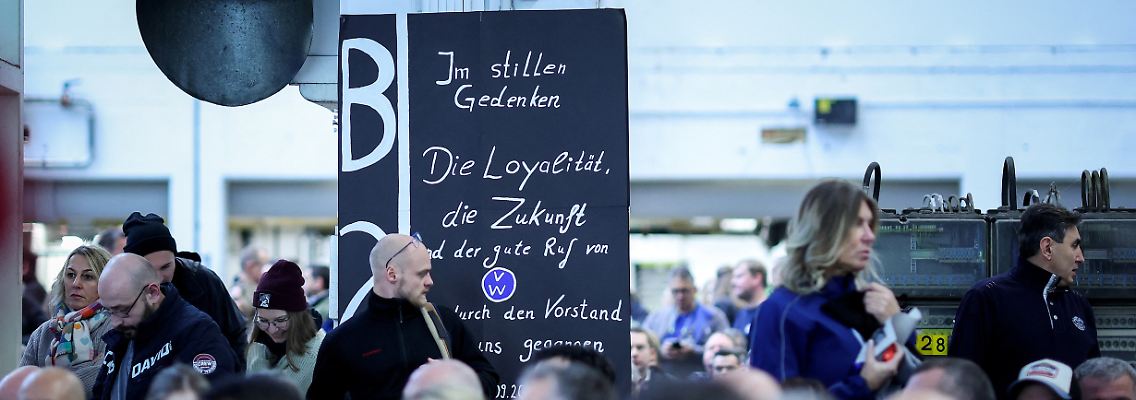 B
Im stillen
Gedenken
Die Loyalität,
die Zukunft
nd der gute Ruf von
VW
durch den Vorstand
uns gegangen
09.20
DAVID
28